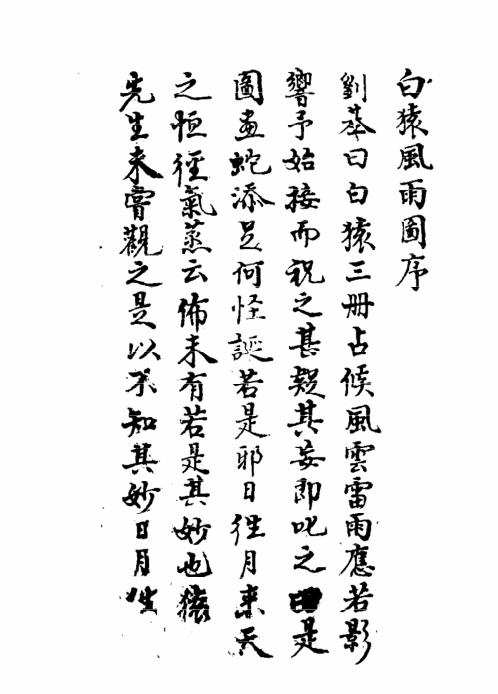 白猿風雨圖序
劉基曰白猿三册占候風雲雷雨應若影
響予始接而視之甚疑其妄即叱之是
圖畫蛇添足何怪誕若是耶日徃月来天
之恒徑氣蒸云佈未有若是其妙也猿
先生未嘗觀之是以不知其妙日月